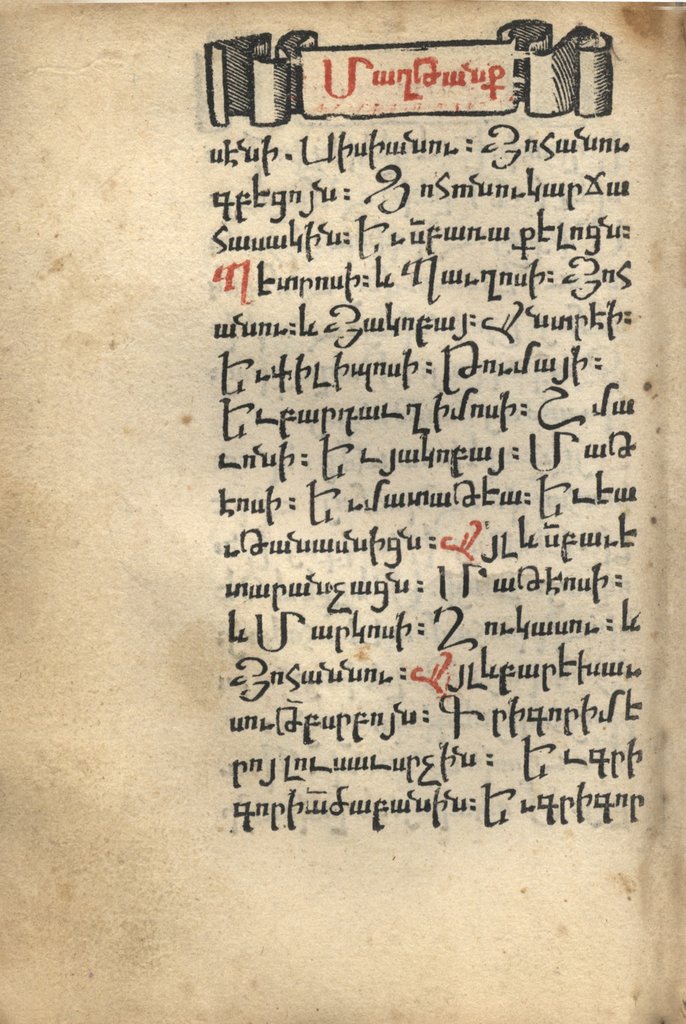 Մաղթանք
սէսի . Սիսիանու : Յոհանու
գբեցոյն : կարճա
հասակին : Եւ ս̃բ առաքելոցն :
Պետրոսի : և Պաւղոսի : Յոհ
անու : և Յակոբայ : Անտրէի :
Եւ փիլիպոսի : Թումայի :
Եւ բարդաւղիմոսի : Շմա
ւոնի : Եւ յակոբայ : Մաթ
էոսի : Եւ մատաթէա : Եւ եա
ւթանասնիցն : Այլ և ս̃բ աւե
տարանչացն : Մաթէոսի :
և Մարկոսի : Ղուկասու : և
Յոհաննու : Այլ և բարեխաւ
սութ̃բ սրբոյն : Գրիգորի մե
րոյ լուսաւորչին : Եւ գրի
գորի ա̃ծաբանին : Եւ գրիգոր